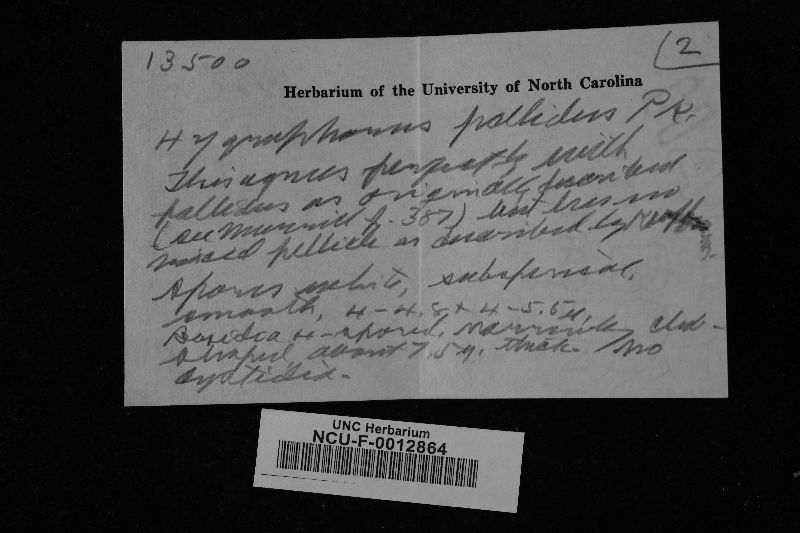 13500
(2
Herbarium of the University of North Carolina
Hygrophorus pallidus Pk.
This agrees perfectly with
pallidus as originally described
(see Murrill p. 387) but has no
viscid pellicle as described by
Spores white, subspherical,
smooth, 4-4.8 x 4-5.5µ,
Basidia 4-spored, narrowly club-
shaped, about 7.5µ. thick. No
cystidia.
UNC Herbarium
NCU-F-0012864